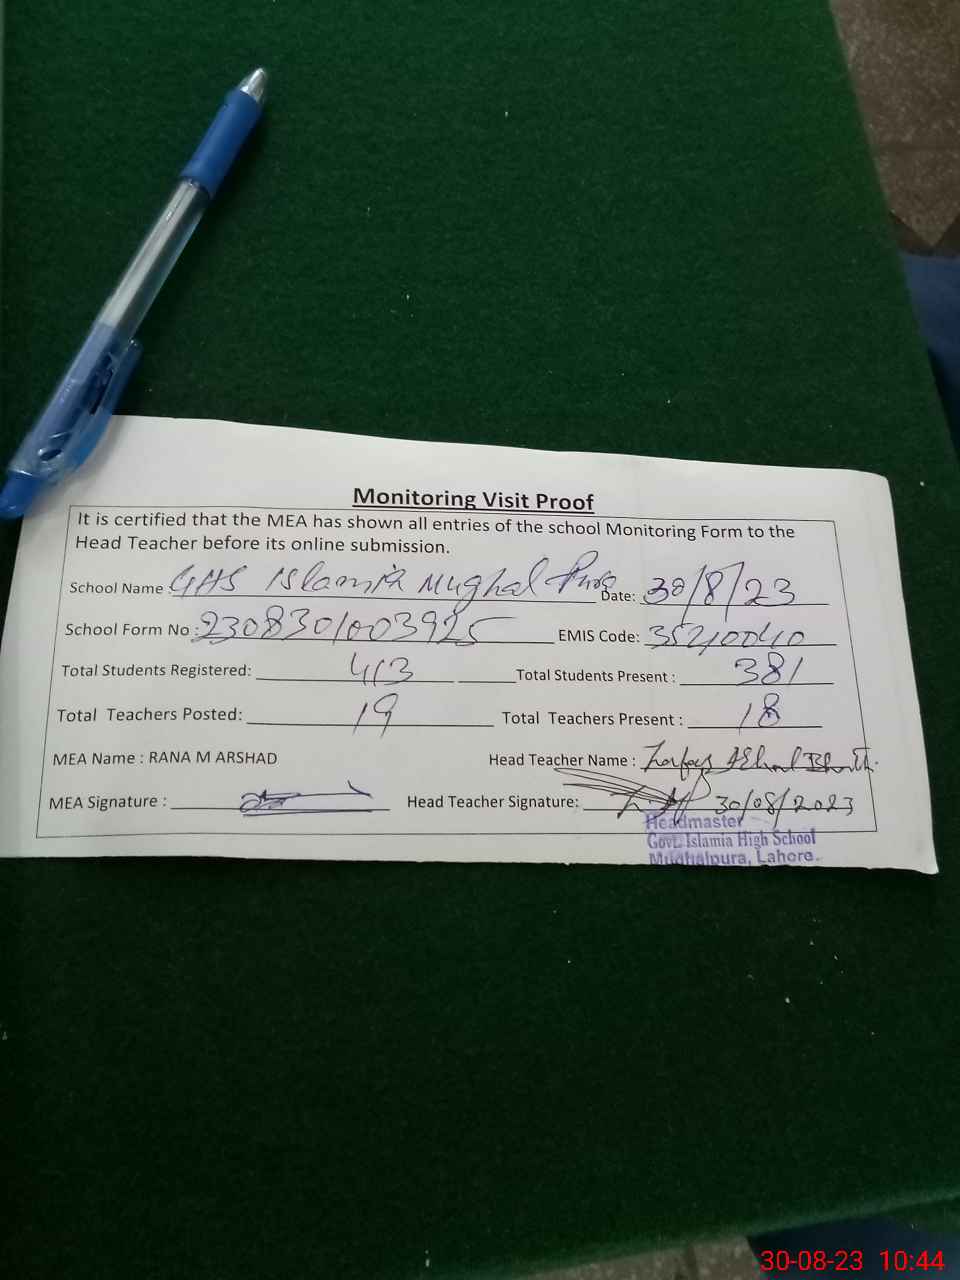 Monitoring Visit Proof
It is certified that the MEA has shown all entries of the school Monitoring Form to the
Head Teacher before its online submission.
School Name : GHS Islamia Mughal Pura Date: 30/8/23
School Form No : 230830/003925 EMIS Code: 35210040
Total Students Registered: 413 Total Students Present : 381
Total Teachers Posted: 19 Total Teachers Present : 18
MEA Name : RANA M ARSHAD Head Teacher Name :
MEA Signature : Head Teacher Signature: 30/08/2023
Headmaster
Govt. Islamia High School
Mughalpura, Lahore.
30-08-23 10:44